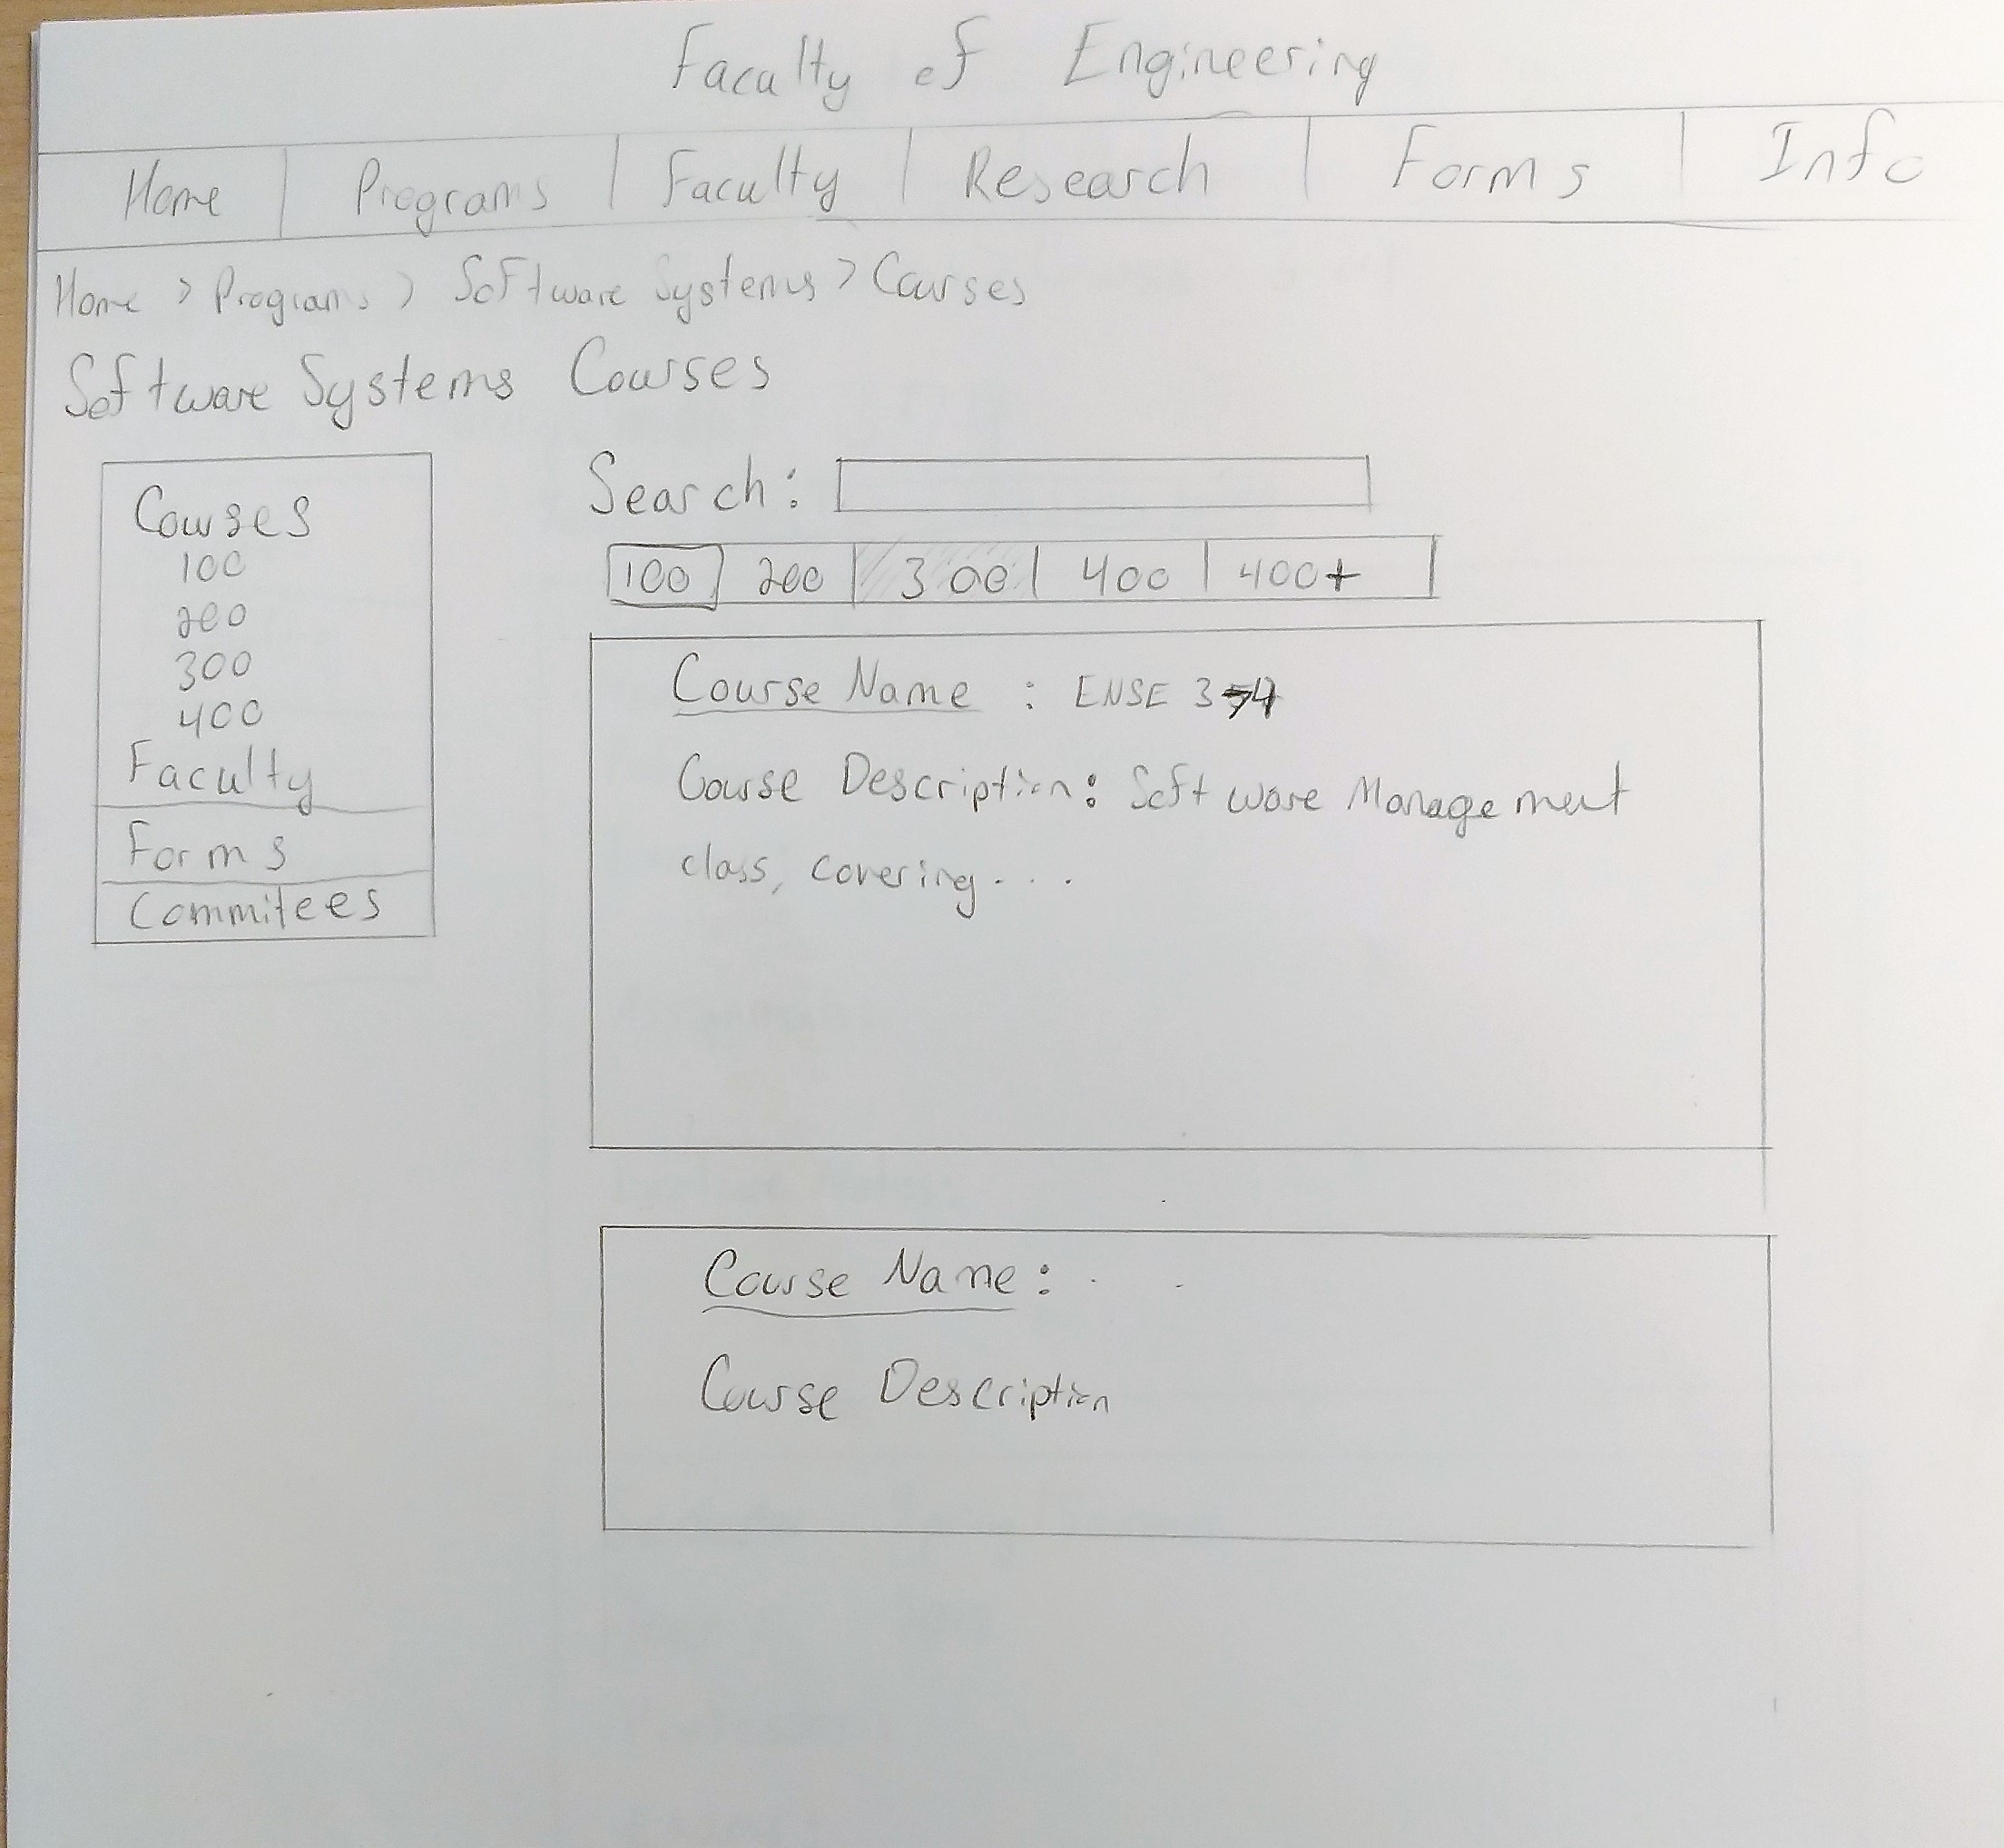 Faculty of Engineering
Home Programs Faculty Research Forms Info
Home > Programs > Software Systems > Courses
Software Systems Courses
Courses
100
200
300
400
Faculty
Forms
Commitees
Search:
100 200 300 400 400+
Course Name : ENSE
Course Description: Software Management
class, covering...
Course Name: . .
Course Description